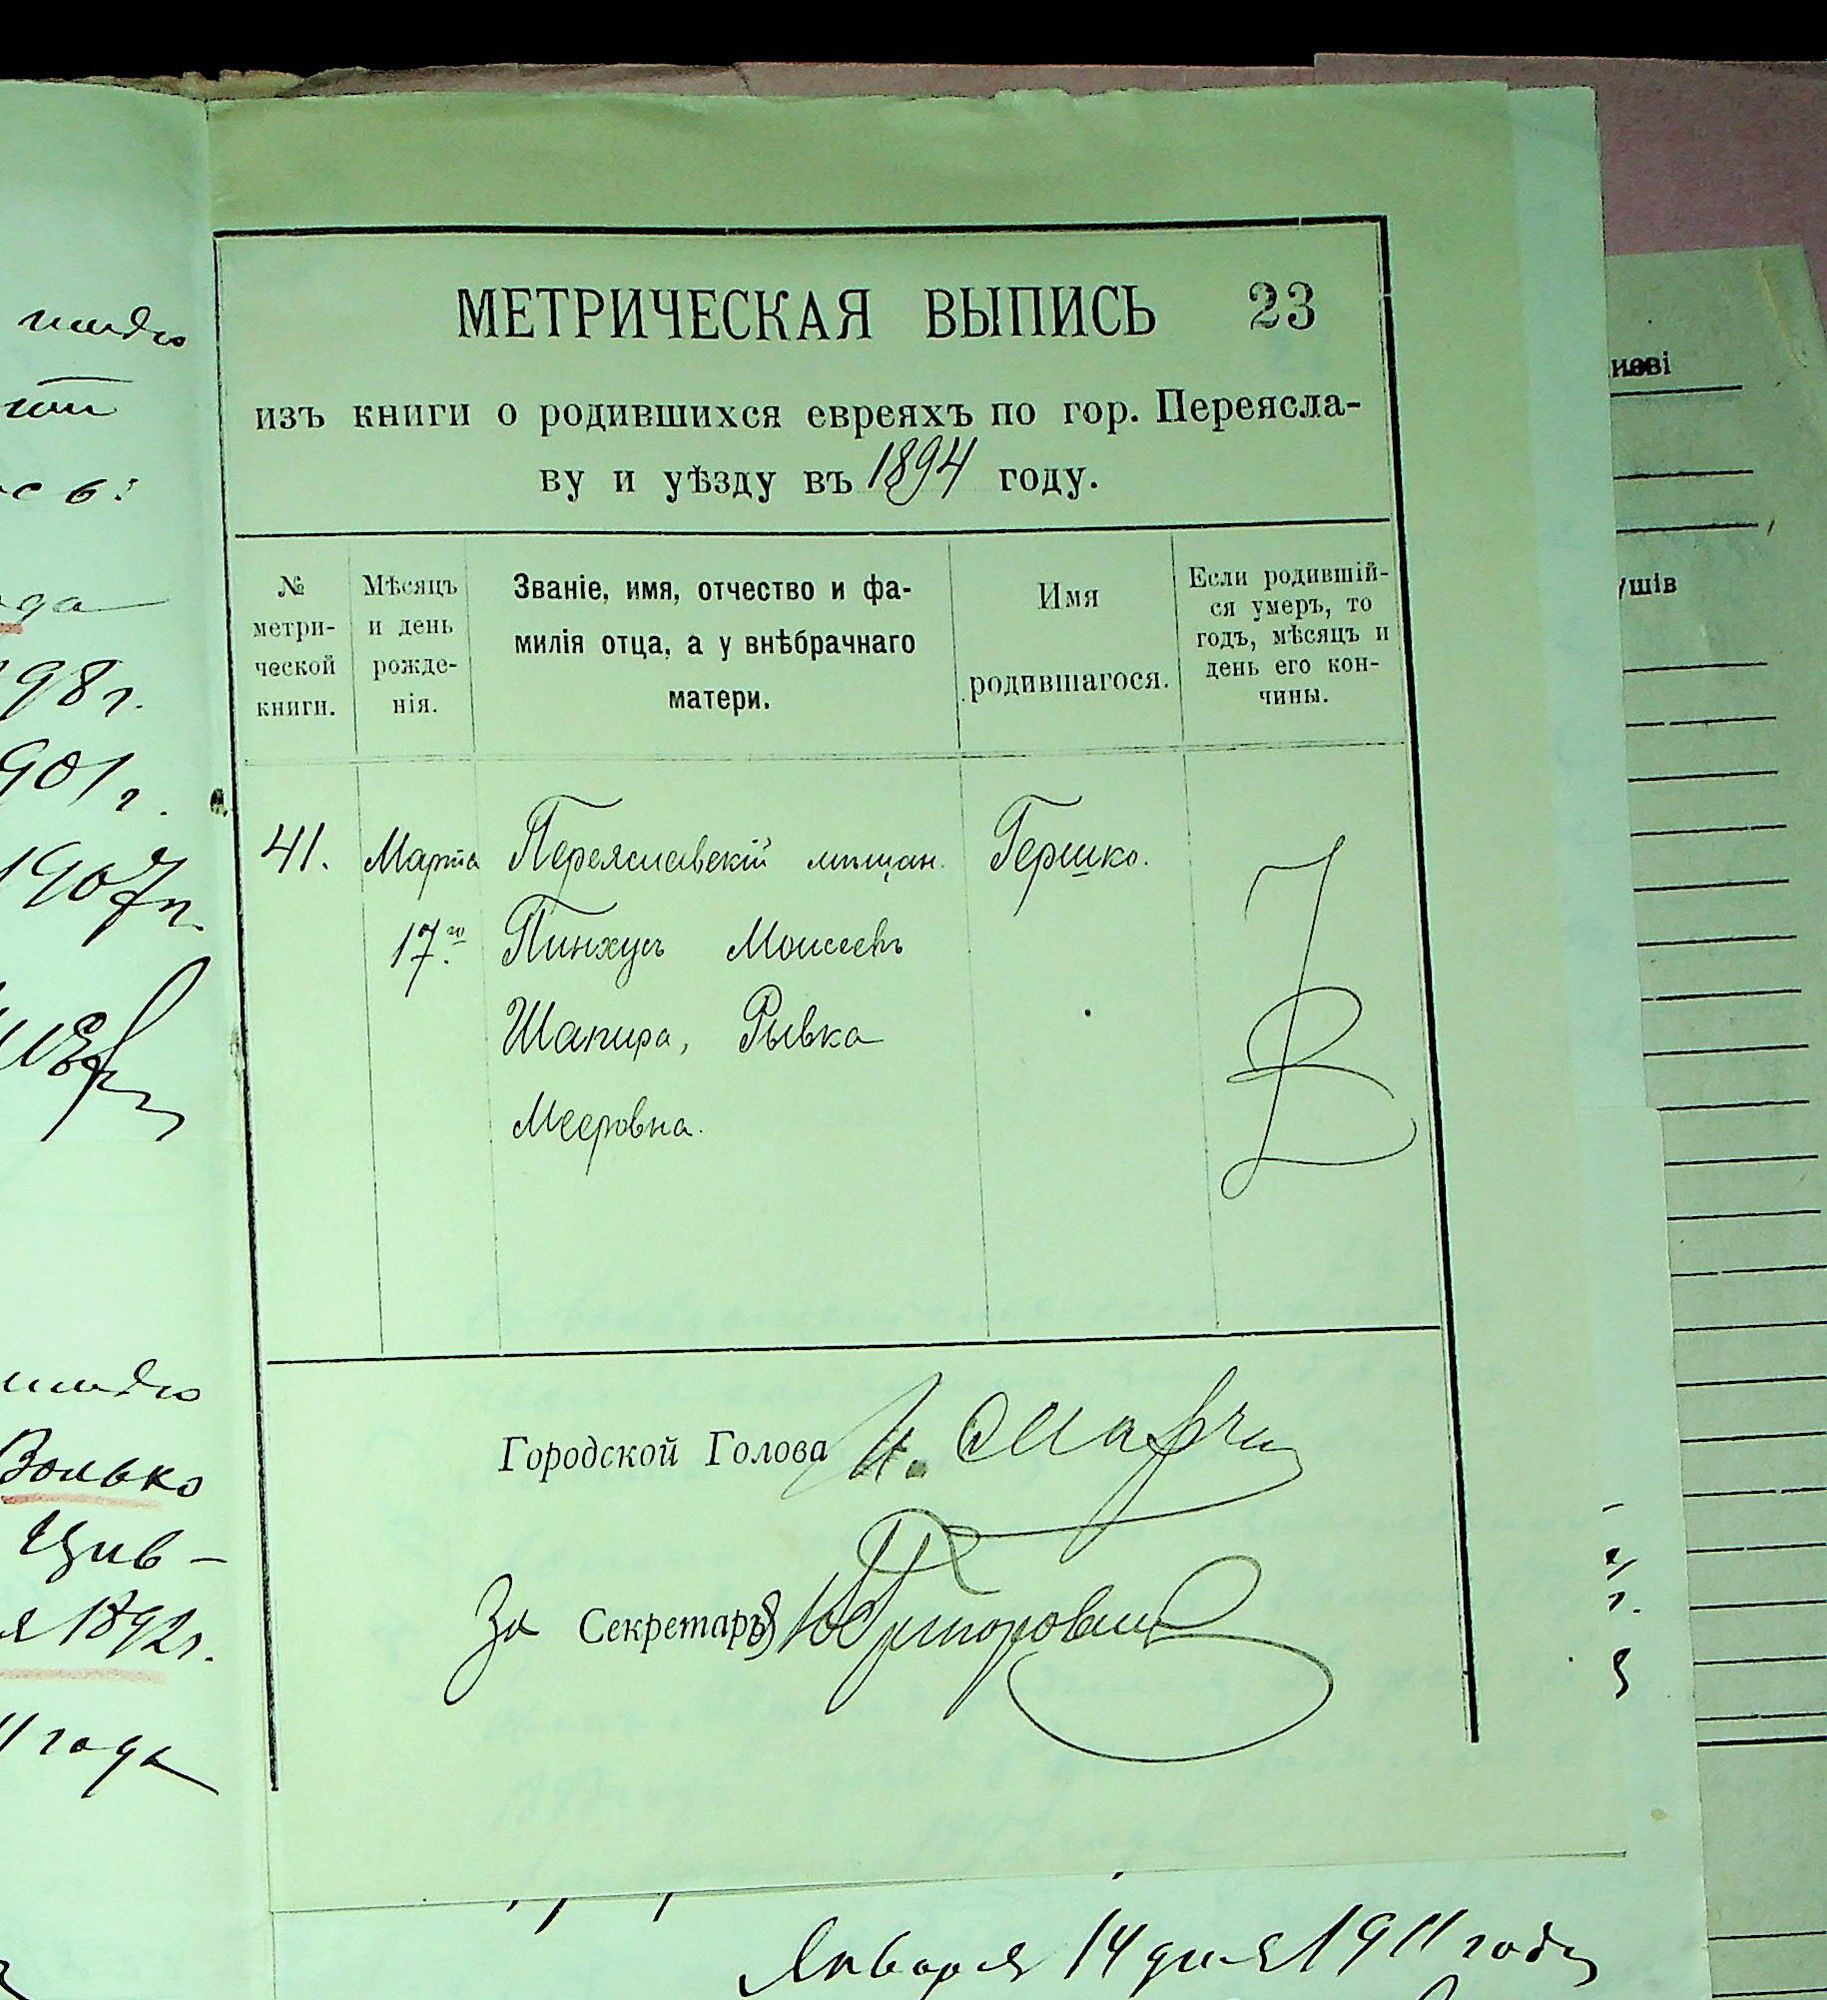 МЕТРИЧЕСКАЯ ВЫПИСЬ 23
изъ книги о родившихся евреяхъ по гор. Переясла-
ву и уѣзду въ 1894 году.
№ метри-
ческой
книги.
Мѣсяцъ
и день
рожде-
нія.
Званіе, имя, отчество и фа-
милія отца, а у внѣбрачнаго
матери.
Имя
родившагося.
Если родившій-
ся умеръ, то
годъ, мѣсяцъ и
день его кон-
чины.
41.
Марта
17.го
Переяславскій мѣщан.
Пинхусъ Моисеевъ
Шапира, Рывка
Мееровна.
Гершко.
Городской Голова
За Секретаря
98 г.
901 г.
1907 г.
Волько
Цив-
я 1892 г.
11 года
Января 14 дня 1911 года
ушів